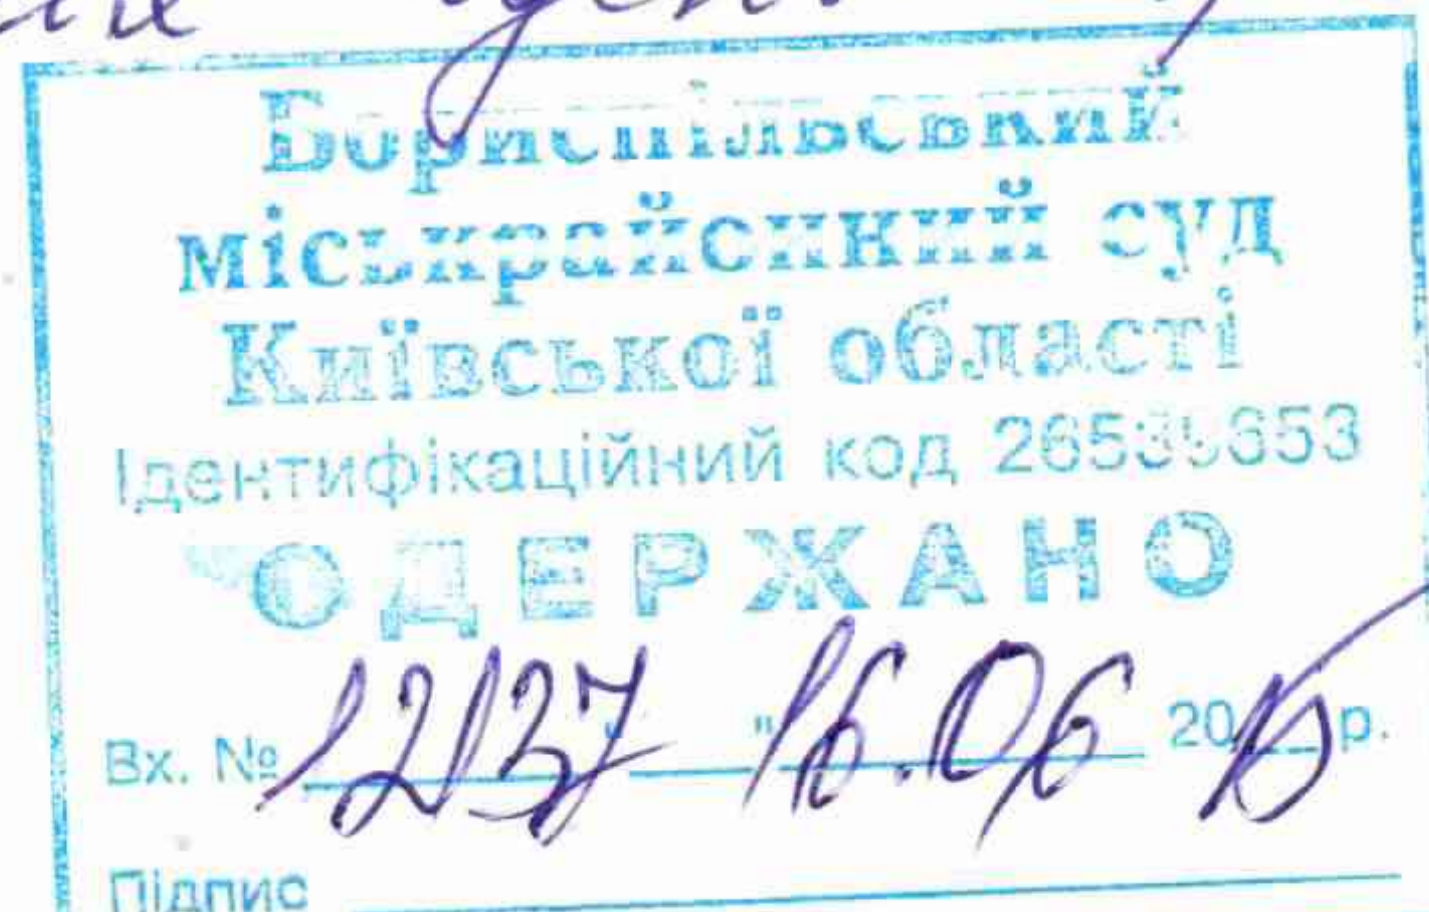 Бориспільський
міськрайонний суд
Київської області
Ідентифікаційний код
ОДЕРЖАНО
Вх. № 12137 "16.06 2015 р.
Підпис